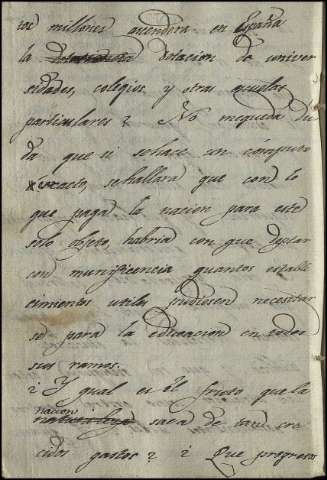 tos millones ascenderá en España
la dotacion de univer
sidades, colegios, y otras escuelas
particulares? No me queda du
da que si se hace un cómputo
exacto, se hallará que con lo
que paga la nacion para este
solo objeto, habria con que dotar
con munificencia quantos estable
cimientos utiles pudiesen necesitar
se para la educacion en todos
sus ramos.
¿Y qual es el fruto que la
nacion saca de tan cre
cidos gastos? ¿Que progresos